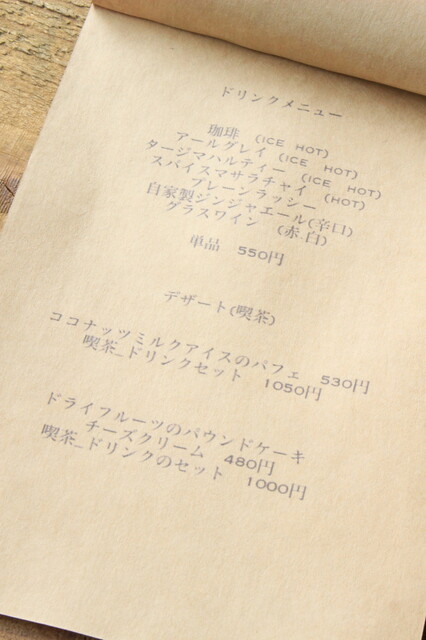 ドリンクメニュー
珈琲 (ICE HOT)
アールグレイ (ICE HOT)
タージマハルティー (ICE HOT)
スパイスマサラチャイ (HOT)
プレーンラッシー
自家製ジンジャエール(辛口)
グラスワイン (赤.白)
単品 550円
デザート(喫茶)
ココナッツミルクアイスのパフェ 530円
喫茶_ドリンクセット 1050円
ドライフルーツのパウンドケーキ
チーズクリーム 480円
喫茶_ドリンクのセット 1000円